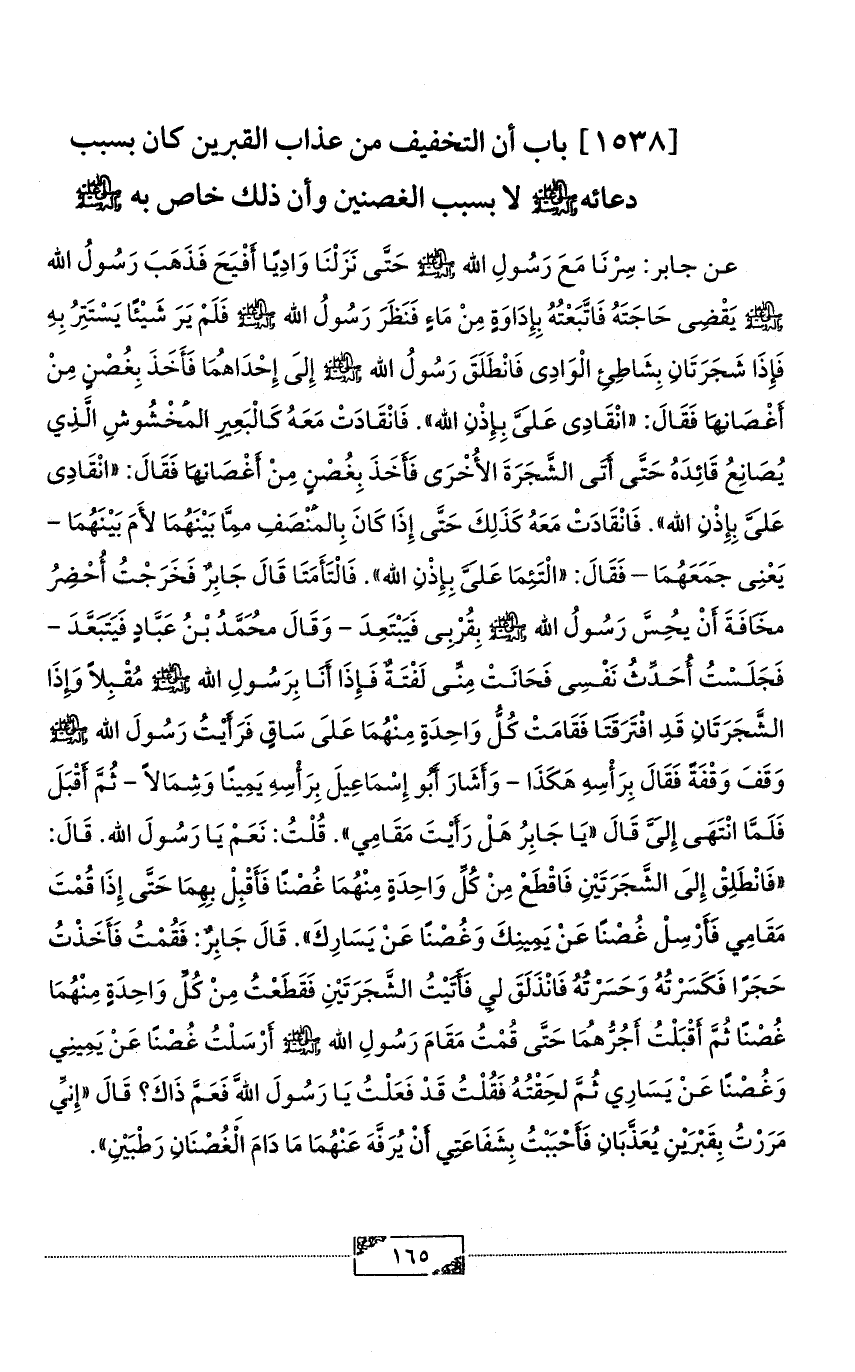 [١٥٣٨] باب أن التخفيف من عذاب القبرين كان بسبب
دعائه ﷺ لا بسبب الغصنين وأن ذلك خاص به ﷺ
عن جابر: سِرْنَا مَعَ رَسُولِ الله ﷺ حَتَّى نَزَلْنَا وَادِيًا أَفْيَحَ فَذَهَبَ رَسُولُ الله
ﷺ يَقْضِى حَاجَتَهُ فَاتَّبَعْتُهُ بِإِدَاوَةٍ مِنْ مَاءٍ فَنَظَرَ رَسُولُ الله ﷺ فَلَمْ يَرَ شَيْئًا يَسْتَتِرُ بِهِ
فَإِذَا شَجَرَتَانِ بِشَاطِئِ الْوَادِى فَانْطَلَقَ رَسُولُ الله ﷺ إِلَى إِحْدَاهُمَا فَأَخَذَ بِغُصْنٍ مِنْ
أَغْصَانِهَا فَقَالَ: «انْقَادِى عَلَىَّ بِإِذْنِ الله». فَانْقَادَتْ مَعَهُ كَالْبَعِيرِ الْمَخْشُوشِ الَّذِي
يُصَانِعُ قَائِدَهُ حَتَّى أَتَى الشَّجَرَةَ الأُخْرَى فَأَخَذَ بِغُصْنٍ مِنْ أَغْصَانِهَا فَقَالَ: «انْقَادِى
عَلَىَّ بِإِذْنِ الله». فَانْقَادَتْ مَعَهُ كَذَلِكَ حَتَّى إِذَا كَانَ بِالْمَنْصَفِ مِمَّا بَيْنَهُمَا لأَمَ بَيْنَهُمَا –
يَعْنِى جَمَعَهُمَا – فَقَالَ: «الْتَئِمَا عَلَىَّ بِإِذْنِ الله». فَالْتَأَمَتَا قَالَ جَابِرٌ فَخَرَجْتُ أُحْضِرُ
مخَافَةَ أَنْ يُحِسَّ رَسُولُ الله ﷺ بِقُرْبِى فَيَبْتَعِدَ – وَقَالَ محَمَّدُ بْنُ عَبَّادٍ فَيَتَبَعَّدَ –
فَجَلَسْتُ أُحَدِّثُ نَفْسِى فَحَانَتْ مِنِّى لَفْتَةٌ فَإِذَا أَنَا بِرَسُولِ الله ﷺ مُقْبِلاً وَإِذَا
الشَّجَرَتَانِ قَدِ افْتَرَقَتَا فَقَامَتْ كُلُّ وَاحِدَةٍ مِنْهُمَا عَلَى سَاقٍ فَرَأَيْتُ رَسُولَ الله ﷺ
وَقَفَ وَقْفَةً فَقَالَ بِرَأْسِهِ هَكَذَا – وَأَشَارَ أَبُو إِسْمَاعِيلَ بِرَأْسِهِ يَمِينًا وَشِمَالاً – ثُمَّ أَقْبَلَ
فَلَمَّا انْتَهَى إِلَىَّ قَالَ «يَا جَابِرُ هَلْ رَأَيْتَ مَقَامِي». قُلْتُ: نَعَمْ يَا رَسُولَ الله. قَالَ:
«فَانْطَلِقْ إِلَى الشَّجَرَتَيْنِ فَاقْطَعْ مِنْ كُلِّ وَاحِدَةٍ مِنْهُمَا غُصْنًا فَأَقْبِلْ بِهِمَا حَتَّى إِذَا قُمْتَ
مَقَامِي فَأَرْسِلْ غُصْنًا عَنْ يَمِينِكَ وَغُصْنًا عَنْ يَسَارِكَ». قَالَ جَابِرٌ: فَقُمْتُ فَأَخَذْتُ
حَجَرًا فَكَسَرْتُهُ وَحَسَرْتُهُ فَانْذَلَقَ لِي فَأَتَيْتُ الشَّجَرَتَيْنِ فَقَطَعْتُ مِنْ كُلِّ وَاحِدَةٍ مِنْهُمَا
غُصْنًا ثُمَّ أَقْبَلْتُ أَجُرُّهُمَا حَتَّى قُمْتُ مَقَامَ رَسُولِ الله ﷺ أَرْسَلْتُ غُصْنًا عَنْ يَمِينِي
وَغُصْنًا عَنْ يَسَارِي ثُمَّ لَحِقْتُهُ فَقُلْتُ قَدْ فَعَلْتُ يَا رَسُولَ اللهَّ فَعَمَّ ذَاكَ؟ قَالَ «إِنِّي
مَرَرْتُ بِقَبْرَيْنِ يُعَذَّبَانِ فَأَحْبَبْتُ بِشَفَاعَتِي أَنْ يُرَفَّهَ عَنْهُمَا مَا دَامَ الْغُصْنَانِ رَطْبَيْنِ».
١٦٥